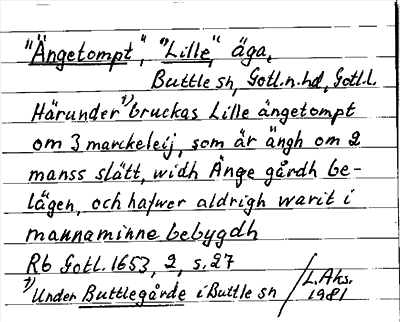 "Ängetompt", 1)"Lille," äga,
Buttle sn, Gotl.n.hd, Gotl.l.
Härunder 1) bruckas Lille ängetompt
om 3 marckeleij, som är ängh om 2
manss slätt, widh Änge gårdh be-
lägen, och hafwer aldrigh warit i
mannaminne bebygdh
Rb Gotl. 1653, 2, s. 27
1) Under Buttlegårde i Buttle sn
L. Aks.
1981